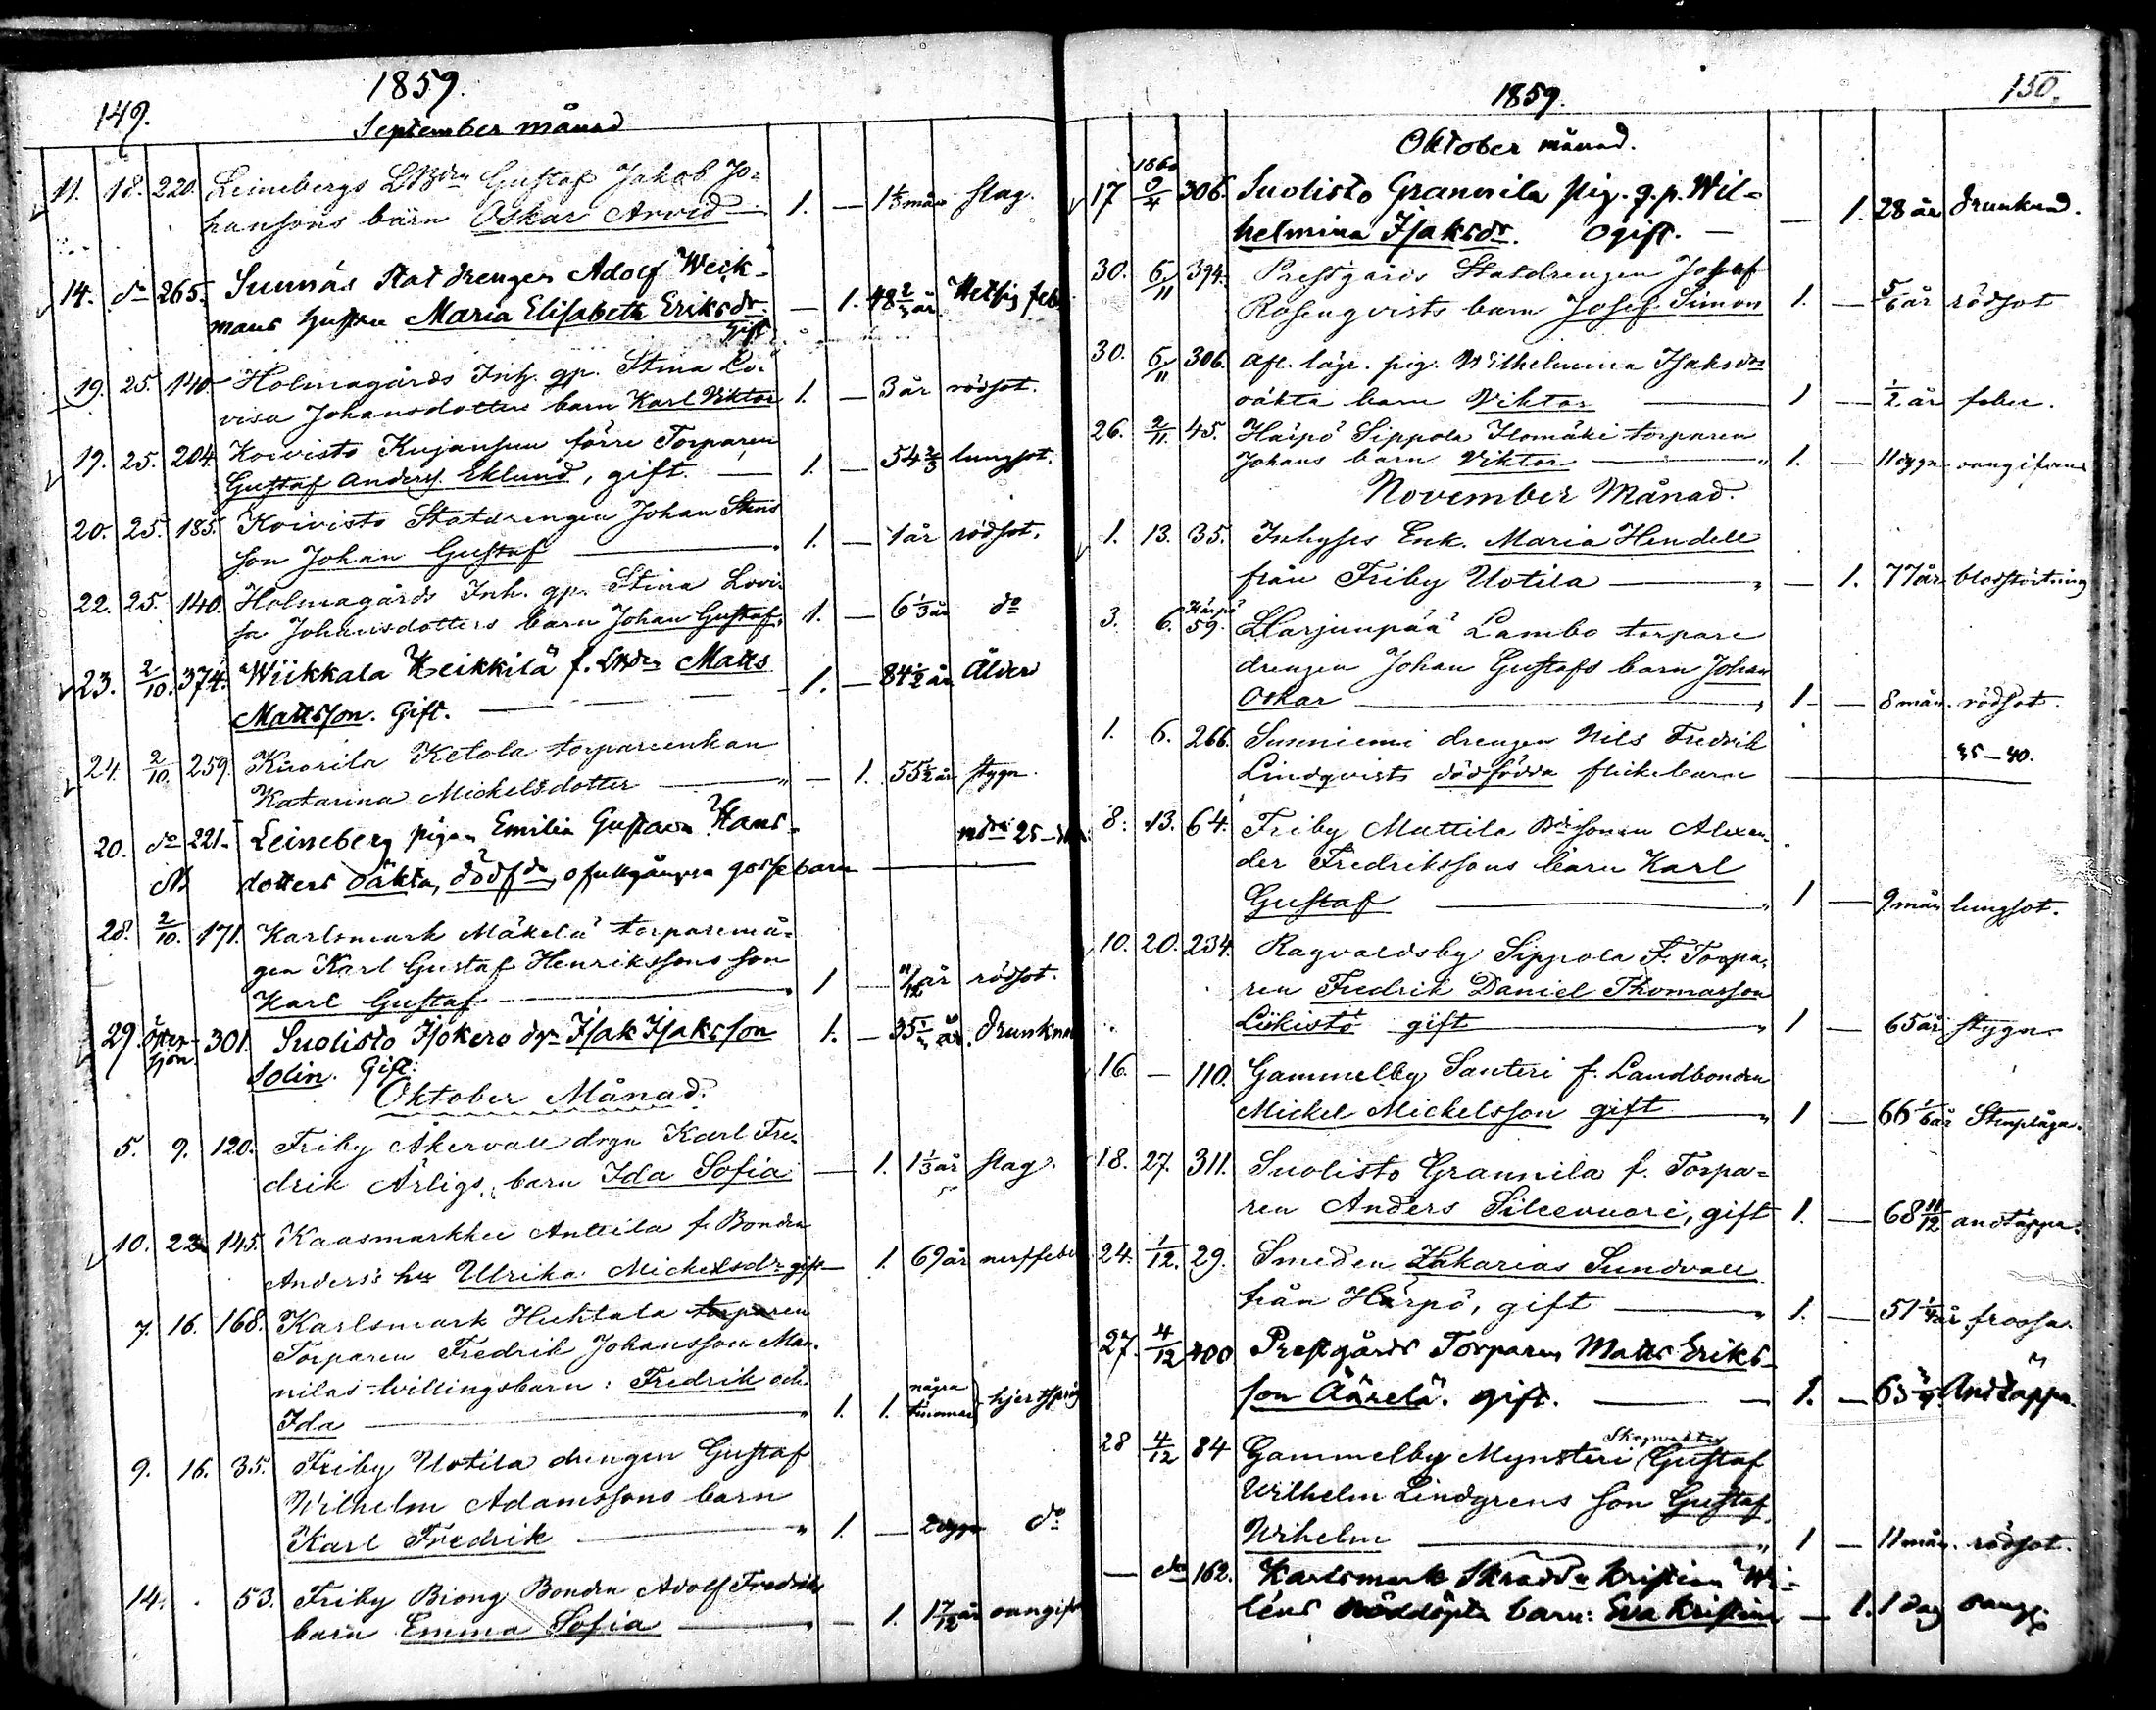 149.
1859.
September månad
11. 18. 220. Leinebergs LBdn Gustaf Jakob Jo-
hansons barn Oskar Arvid 1. — mån slag.
14. do 265. Sunnäs Statdrengen Adolf Weck-
mans hustru Maria Elisabeth Eriksdr. — 1. 48 2/3 år Hetsig feb
Gift
19. 25. 140. Holmagårds Inh. qp. Stina Lo-
visa Johansdotters barn Karl Viktor 1. — 3 år rödsot.
19. 25. 204. Koivisto Kujansuu förre Torparen
Gustaf Anders. Eklund, gift. — 1. — 54 2/3 lungsot.
20. 25. 185. Koivisto Statdrengen Johan Stens
son Johan Gustaf 1. — 1 år rödsot.
22. 25. 140. Holmagårds Inh. qp. Stina Lovi-
sa Johansdotters barn Johan Gustaf. 1. — 6 1/3 år do
23. 2/10. 374. Wiikkala Heikkilä f. LBdn Matts
Mattsson. Gift. — 1. — 84 1/2 år Ålder
24. 2/10. 259. Kuorila Ketola torpareenkan
Katarina Mickelsdotter — 1. 55 1/2 år stygn.
20. do 221. Leineberg pigan Emilia Gustava Hans-
dotters oäkta, dödfdo, ofullgångna gossebarn
28. 2/10. 171. Karlsmark Mäkelä torparemå-
gen Karl Gustaf Henrikssons son
Karl Gustaf 1 — 11/12 år rödsot.
29. Östersjön 301. Suolisto Isokero dgn Isak Isaksson
Solin. Gift. 1. — 35 år. Drunkna
Oktober Månad.
5. 9. 120. Friby Åkervall dgn Karl Fre-
drik Ärligs barn Ida Sofia — 1. 1 1/3 år slag.
10. 22 145. Kaasmarkku Anttila f. Bonden
Anders's hu Ulrika Mickelsdr gift — 1. 69 år nerffeb
7. 16. 168. Karlsmark Huhtala torparen
Torparen Fredrik Johansson Man-
nilas tvillingsbarn: Fredrik och
Ida 1. 1. några timmar hjertspr
9. 16. 35. Friby Uotila drengen Gustaf
Wilhelm Adamssons barn
Karl Fredrik 1. — 2 dygn do
14. . 53. Friby Biong Bonden Adolf Fredriks
barn Emma Sofia — 1. 1 7/12 år oangif
150.
1859.
Oktober månad.
17 1860 9/4 306. Suolisto Grannila pig. g.p. Wil-
helmina Isaksdr. Ogift. — 1. 28 år Drunknad.
30. 6/11 394. Prestgårds Statdrengen Josef
Rosenqvists barn Josef Simon 1. — 5/6 år rödsot
30. 6/11 306. Afl. lägr. pig. Wilhelmina Isaksdrs
oäkta barn Viktor 1 — 1/2 år feber.
26. 2/11. 45. Harpö Sippola Ilomäki torparen
Johans barn Viktor 1. — 11 dygn oangifven
November Månad.
1. 13. 35. Inhyses Enk. Maria Hendell
från Friby Uotila — 1. 77 år blodstörtning
3. 6. Härpö 59. Harjunpää Lambo torpare
drengen Johan Gustafs barn Johan
Oskar 1 — 8 mån. rödsot.
1. 6. 266. Sunniemi drengen Nils Fredrik
Lindqvists dödfödda flickebarn 35–40.
8. 13. 64. Friby Mattila Bdesonen Alexan-
der Fredrikssons barn Karl
Gustaf 1 — 9 mån lungsot.
10. 20. 234. Ragvaldsby Sippola F. Torpa-
ren Fredrik Daniel Thomasson
Liikistö gift 1 — 65 år stygn.
16. — 110. Gammelby Santeri f. Landbonden
Mickel Mickelsson gift 1 — 66 1/6 år Stenplåga.
18. 27. 311. Suolisto Grannila f. Torpa-
ren Anders Silcevuori, gift 1. — 68 11/12 andtäppa.
24. 1/12. 29. Smeden Zakarias Sundvall
från Härpö, gift 1. — 51 1/4 år frossa.
27. 4/12 400 Prestgårds Torparen Matts Eriks-
son Äärelä. gift. 1. — 63 Andtäppa.
28 4/12 84 Gammelby Mynsteri Skogvaktar Gustaf
Wilhelm Lindgrens son Gustaf
Wihelm 1 — 11 mån. rödsot.
— do 162. Karlsmark Skradd Kristian Wi-
léns nöddöpta barn: Eva Kristina — 1. 1 dag oangf.